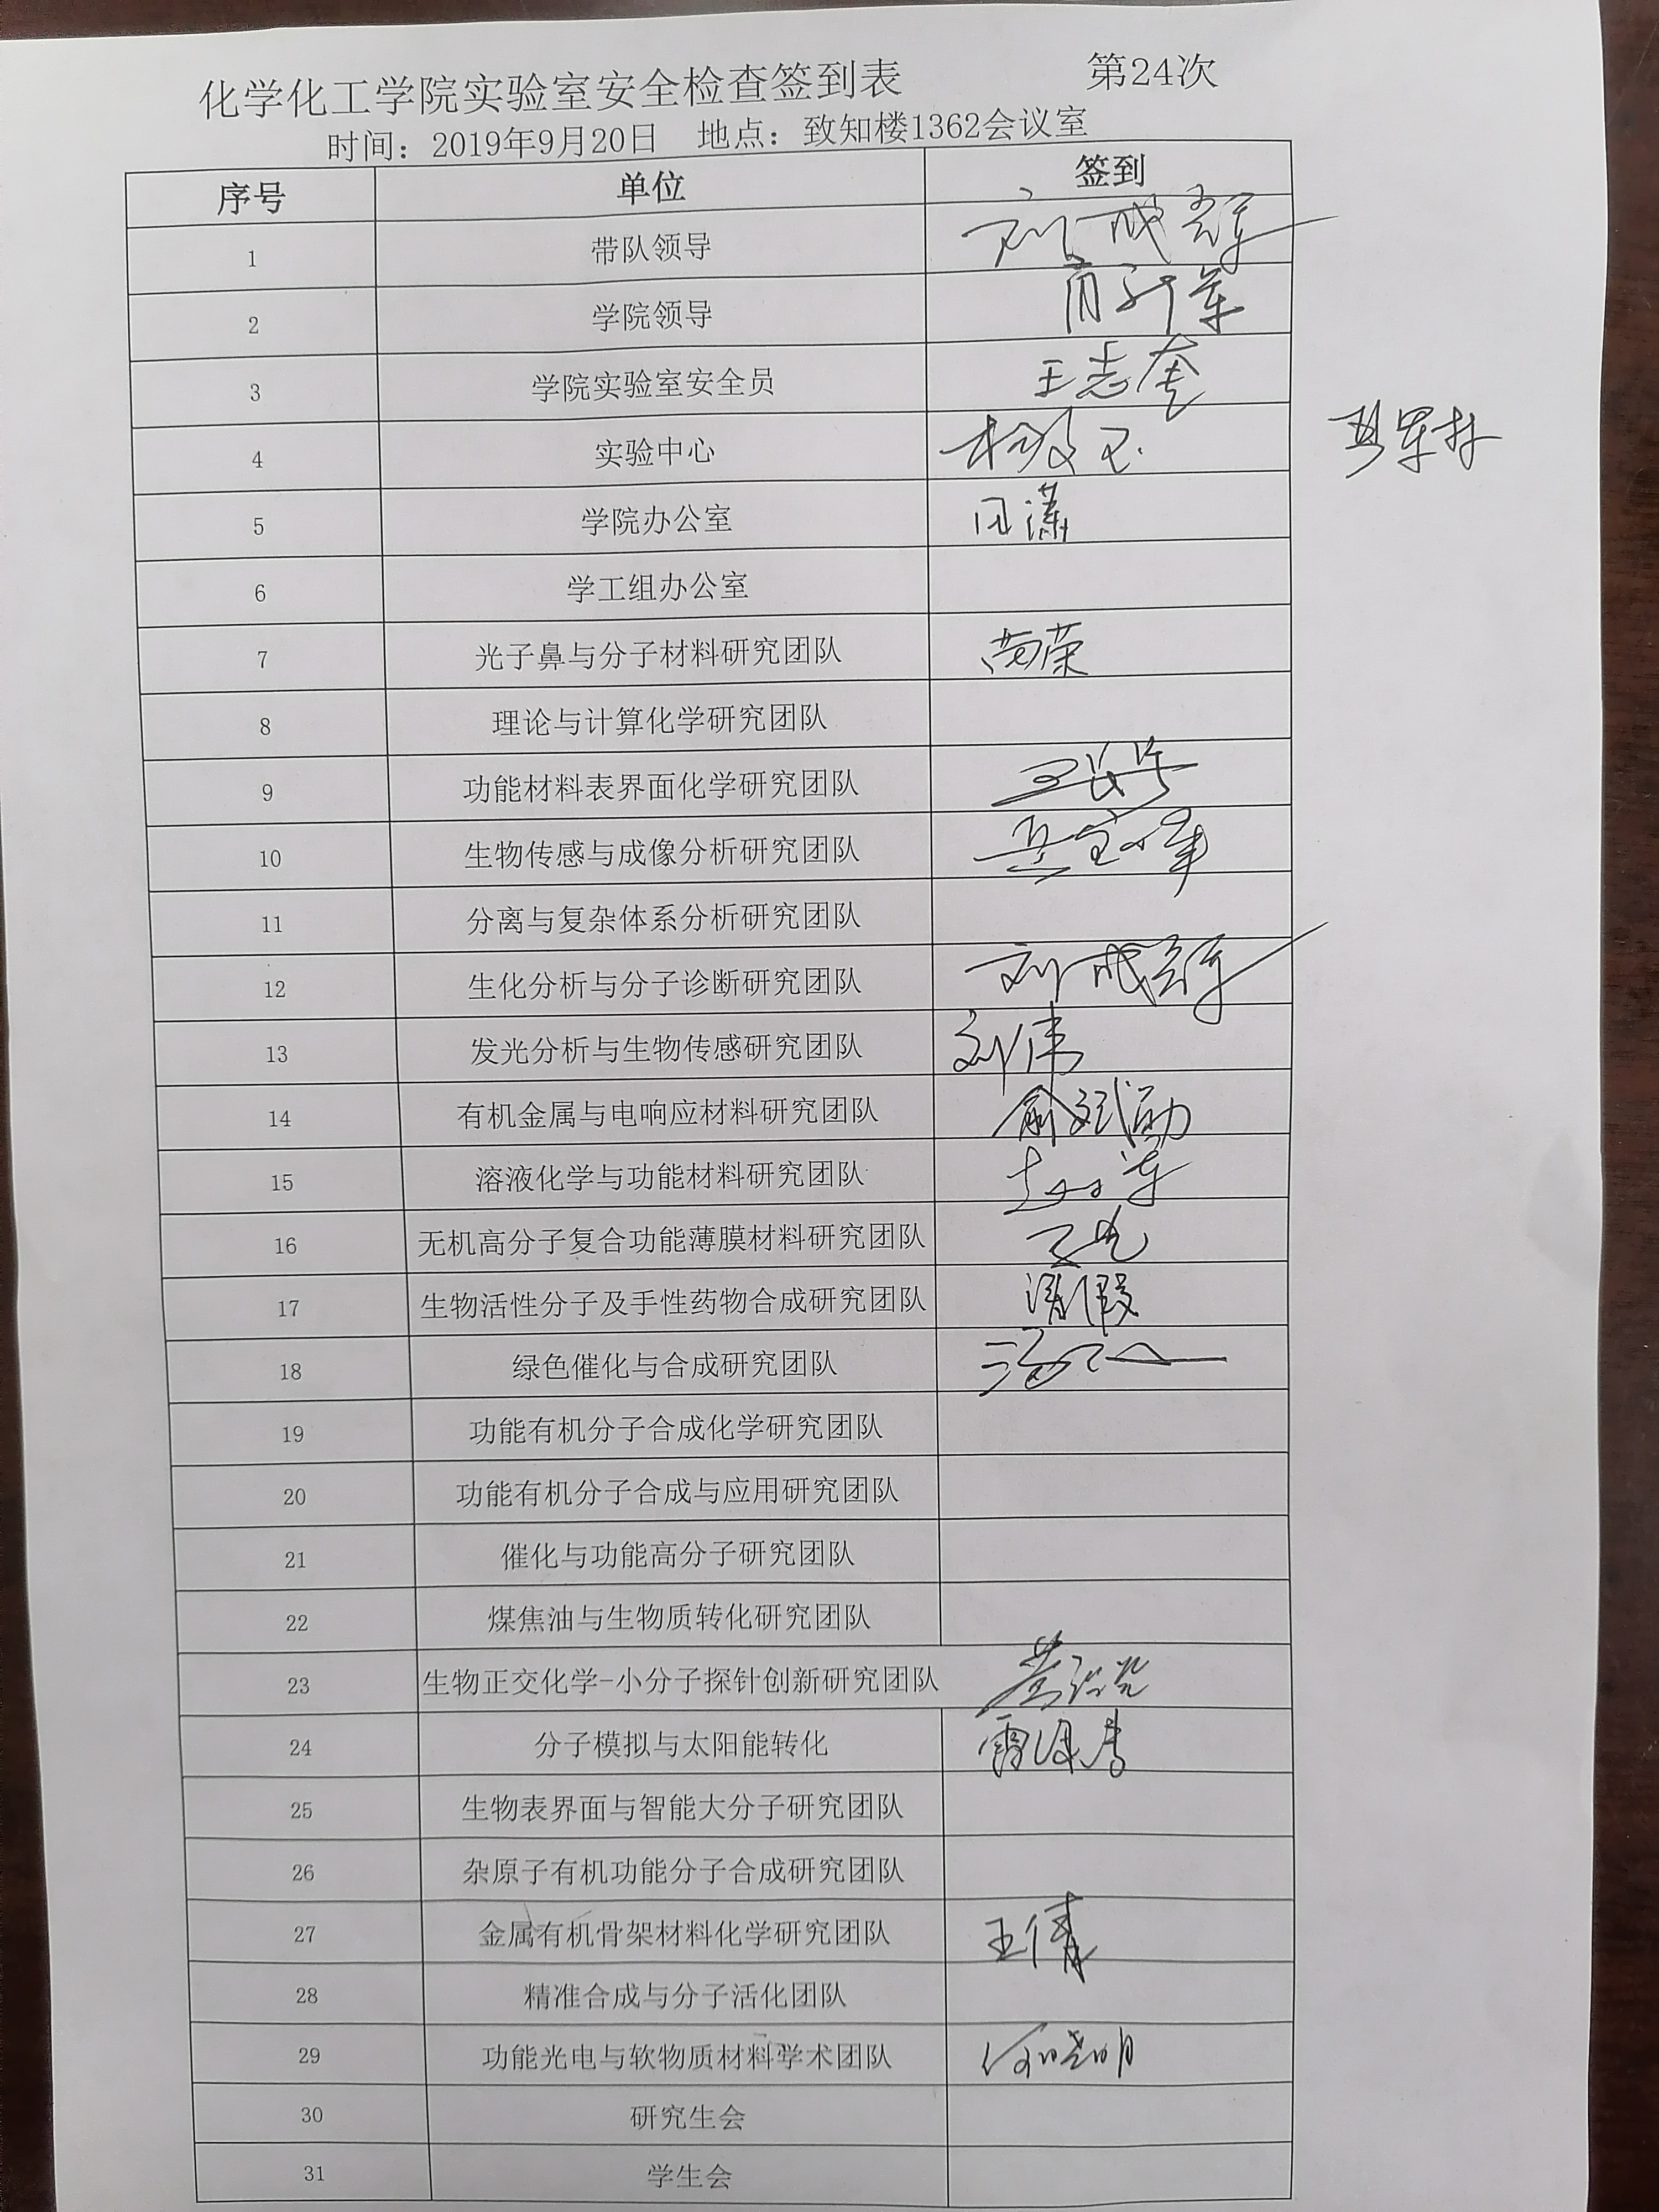 化学化工学院实验室安全检查签到表 第24次
时间：2019年9月20日 地点：致知楼1362会议室
序号 单位 签到
1 带队领导 刘成辉
2 学院领导
3 学院实验室安全员 王志奎
4 实验中心
5 学院办公室 闫潇
6 学工组办公室
7 光子鼻与分子材料研究团队 尚荣
8 理论与计算化学研究团队
9 功能材料表界面化学研究团队
10 生物传感与成像分析研究团队
11 分离与复杂体系分析研究团队
12 生化分析与分子诊断研究团队 刘成辉
13 发光分析与生物传感研究团队 刘伟
14 有机金属与电响应材料研究团队 俞斌勋
15 溶液化学与功能材料研究团队
16 无机高分子复合功能薄膜材料研究团队
17 生物活性分子及手性药物合成研究团队
18 绿色催化与合成研究团队
19 功能有机分子合成化学研究团队
20 功能有机分子合成与应用研究团队
21 催化与功能高分子研究团队
22 煤焦油与生物质转化研究团队
23 生物正交化学-小分子探针创新研究团队
24 分子模拟与太阳能转化
25 生物表界面与智能大分子研究团队
26 杂原子有机功能分子合成研究团队
27 金属有机骨架材料化学研究团队 王倩
28 精准合成与分子活化团队
29 功能光电与软物质材料学术团队 何学明
30 研究生会
31 学生会